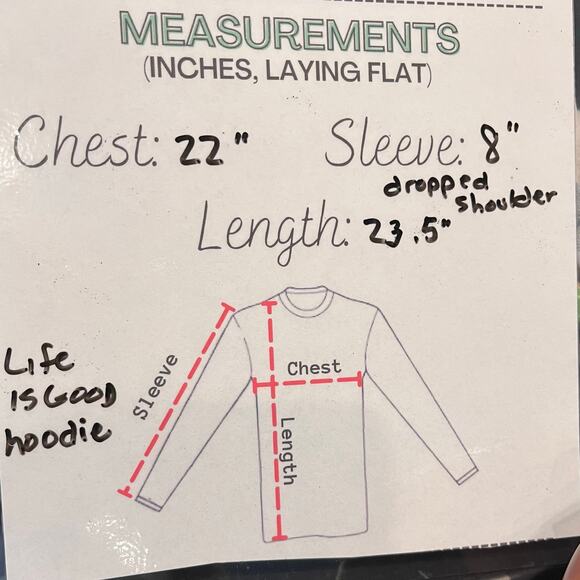 MEASUREMENTS
(INCHES, LAYING FLAT)
Chest: 22" Sleeve: 8"
dropped shoulder
Length: 23.5"
Life
IS GOOD
hoodie
Sleeve
Chest
Length